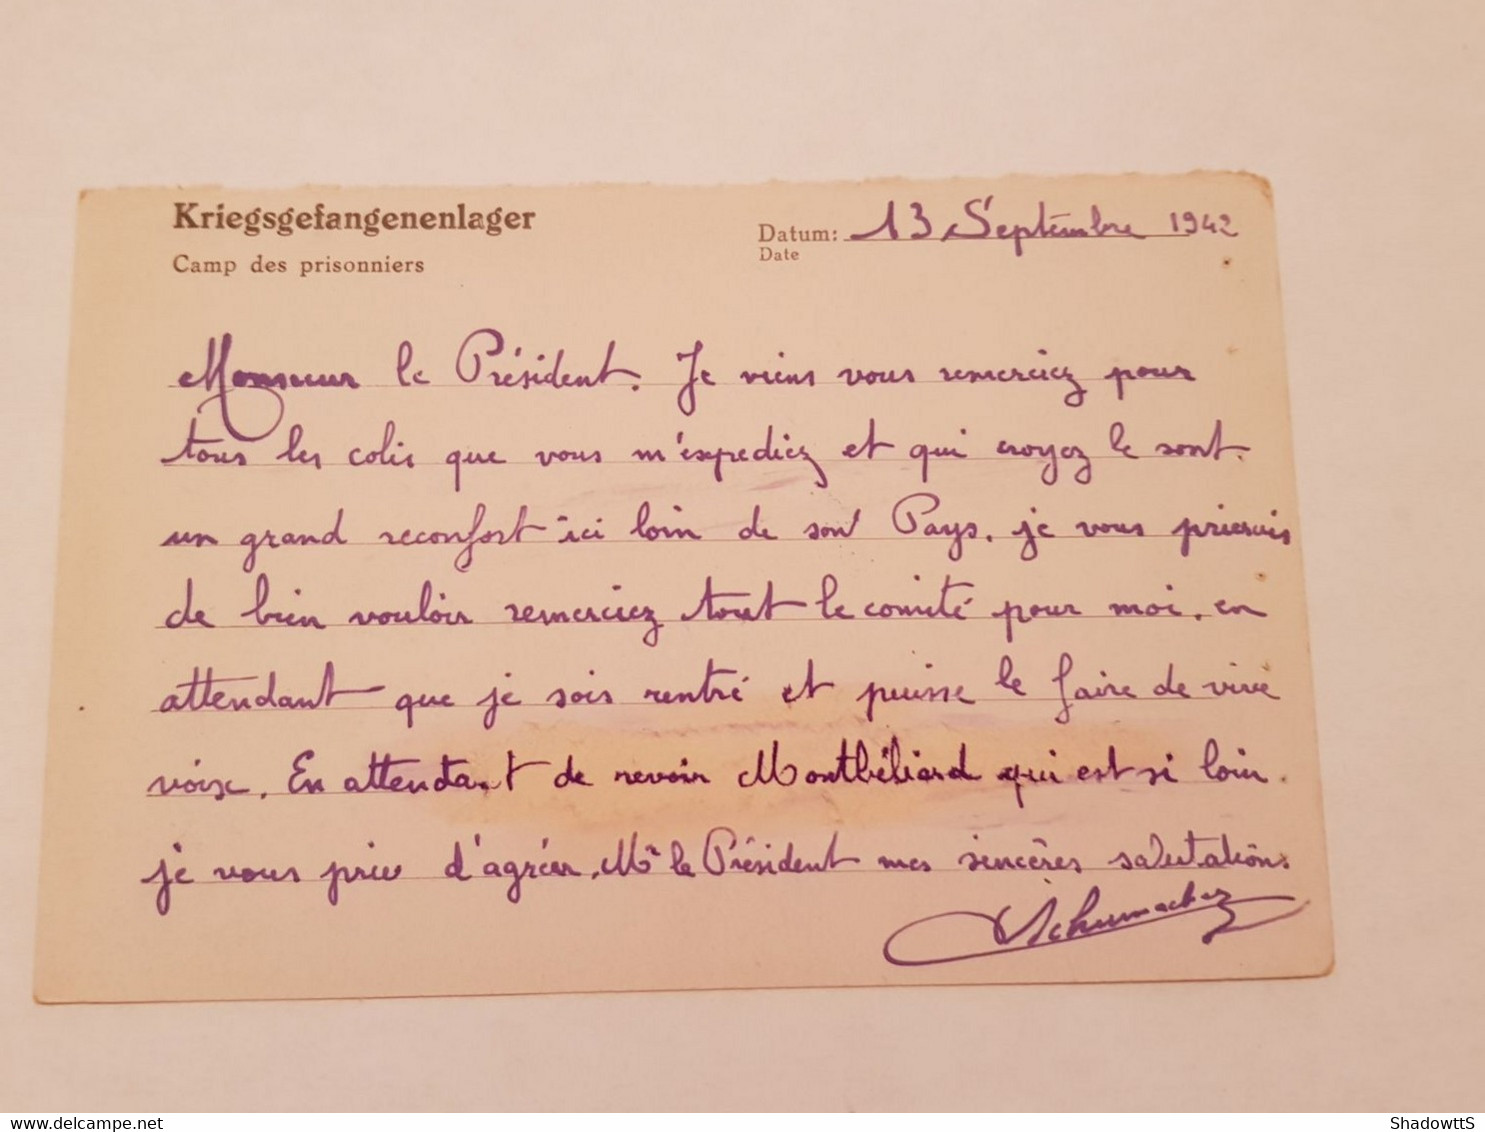 Kriegsgefangenenlager
Camp des prisonniers
Datum: 13 Septembre 1942
Date
Monsieur le Président. Je viens vous remerciez pour
tous les colis que vous m'expediez et qui croyez le sont.
un grand reconfort ici loin de son Pays. je vous prierais
de bien vouloir remerciez tout le comité pour moi. en
attendant que je sois rentré et puisse le faire de vive
voix. En attendant de revoir Montbéliard qui est si loin.
je vous prie d'agréer, Mr le Président mes sincères salutations.
Schumacher
ShadowttS